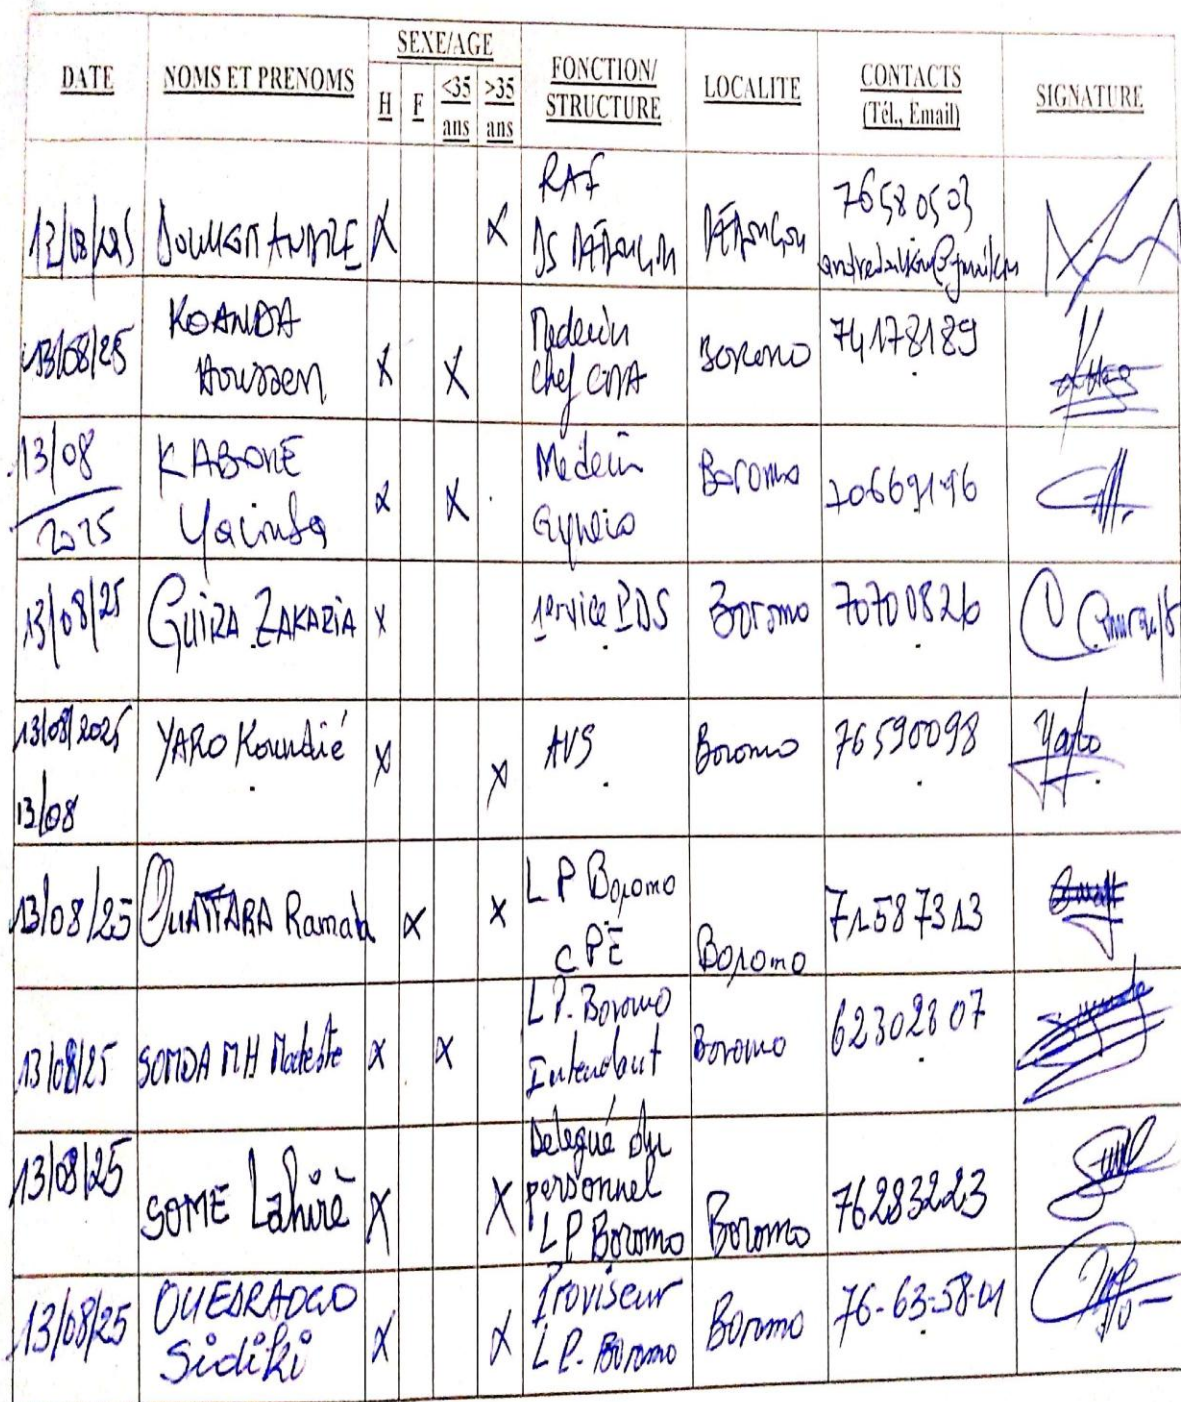 DATE NOMS ET PRENOMS SEXE/AGE FONCTION/ STRUCTURE LOCALITE CONTACTS (Tél., Email) SIGNATURE
H F <35 ans >35 ans
ANDRE X X RAF DS 76580503
13/08/25 KOANDA X X Medecin chef CMA Boromo 74178189
13/08 2025 KABORE X X Medecin Boromo
13/08/25 GUIRA ZAKARIA X service Boromo 70700826
13/08/2025 13/08 YARO Koundié X X AVS Boromo 76590098
13/08/25 OUATTARA Ramata X X LP Boromo CPE Boromo 71587313
13/08/25 SOMDA MH Modeste X X LP. Boromo Intendant Boromo 62302807
13/08/25 SOME Lahirè X X Delegué du personnel LP Boromo Boromo 76283223
13/08/25 OUEDRAOGO Sidiki X X Proviseur LP. Boromo Boromo 76-63-58-01